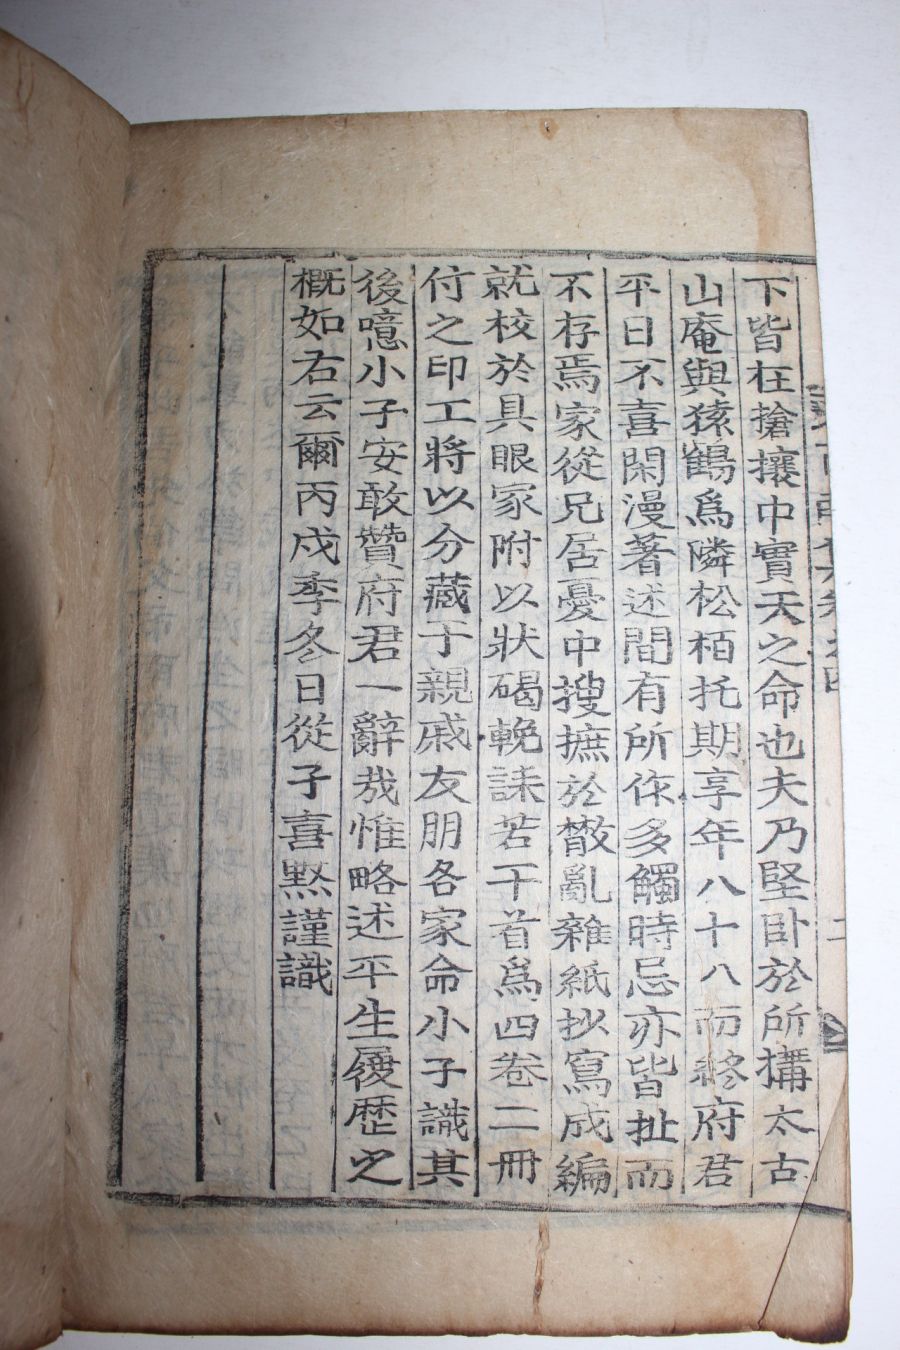 下皆枉搶攘中實天之命也夫乃堅卧於所搆太古
山庵與猿鶴爲隣松栢托期享年八十八而終府君
平日不喜閑漫著述間有所作多觸時忌亦皆扯而
不存焉家從兄居憂中搜摭於散亂雜紙抄寫成編
就校於具眼家附以狀碣輓誄若干首爲四卷二冊
付之印工將以分藏于親戚友朋各家命小子識其
後噫小子安敢贊府君一辭哉惟略述平生履歷之
概如右云爾丙戌季冬日從子喜黙謹識